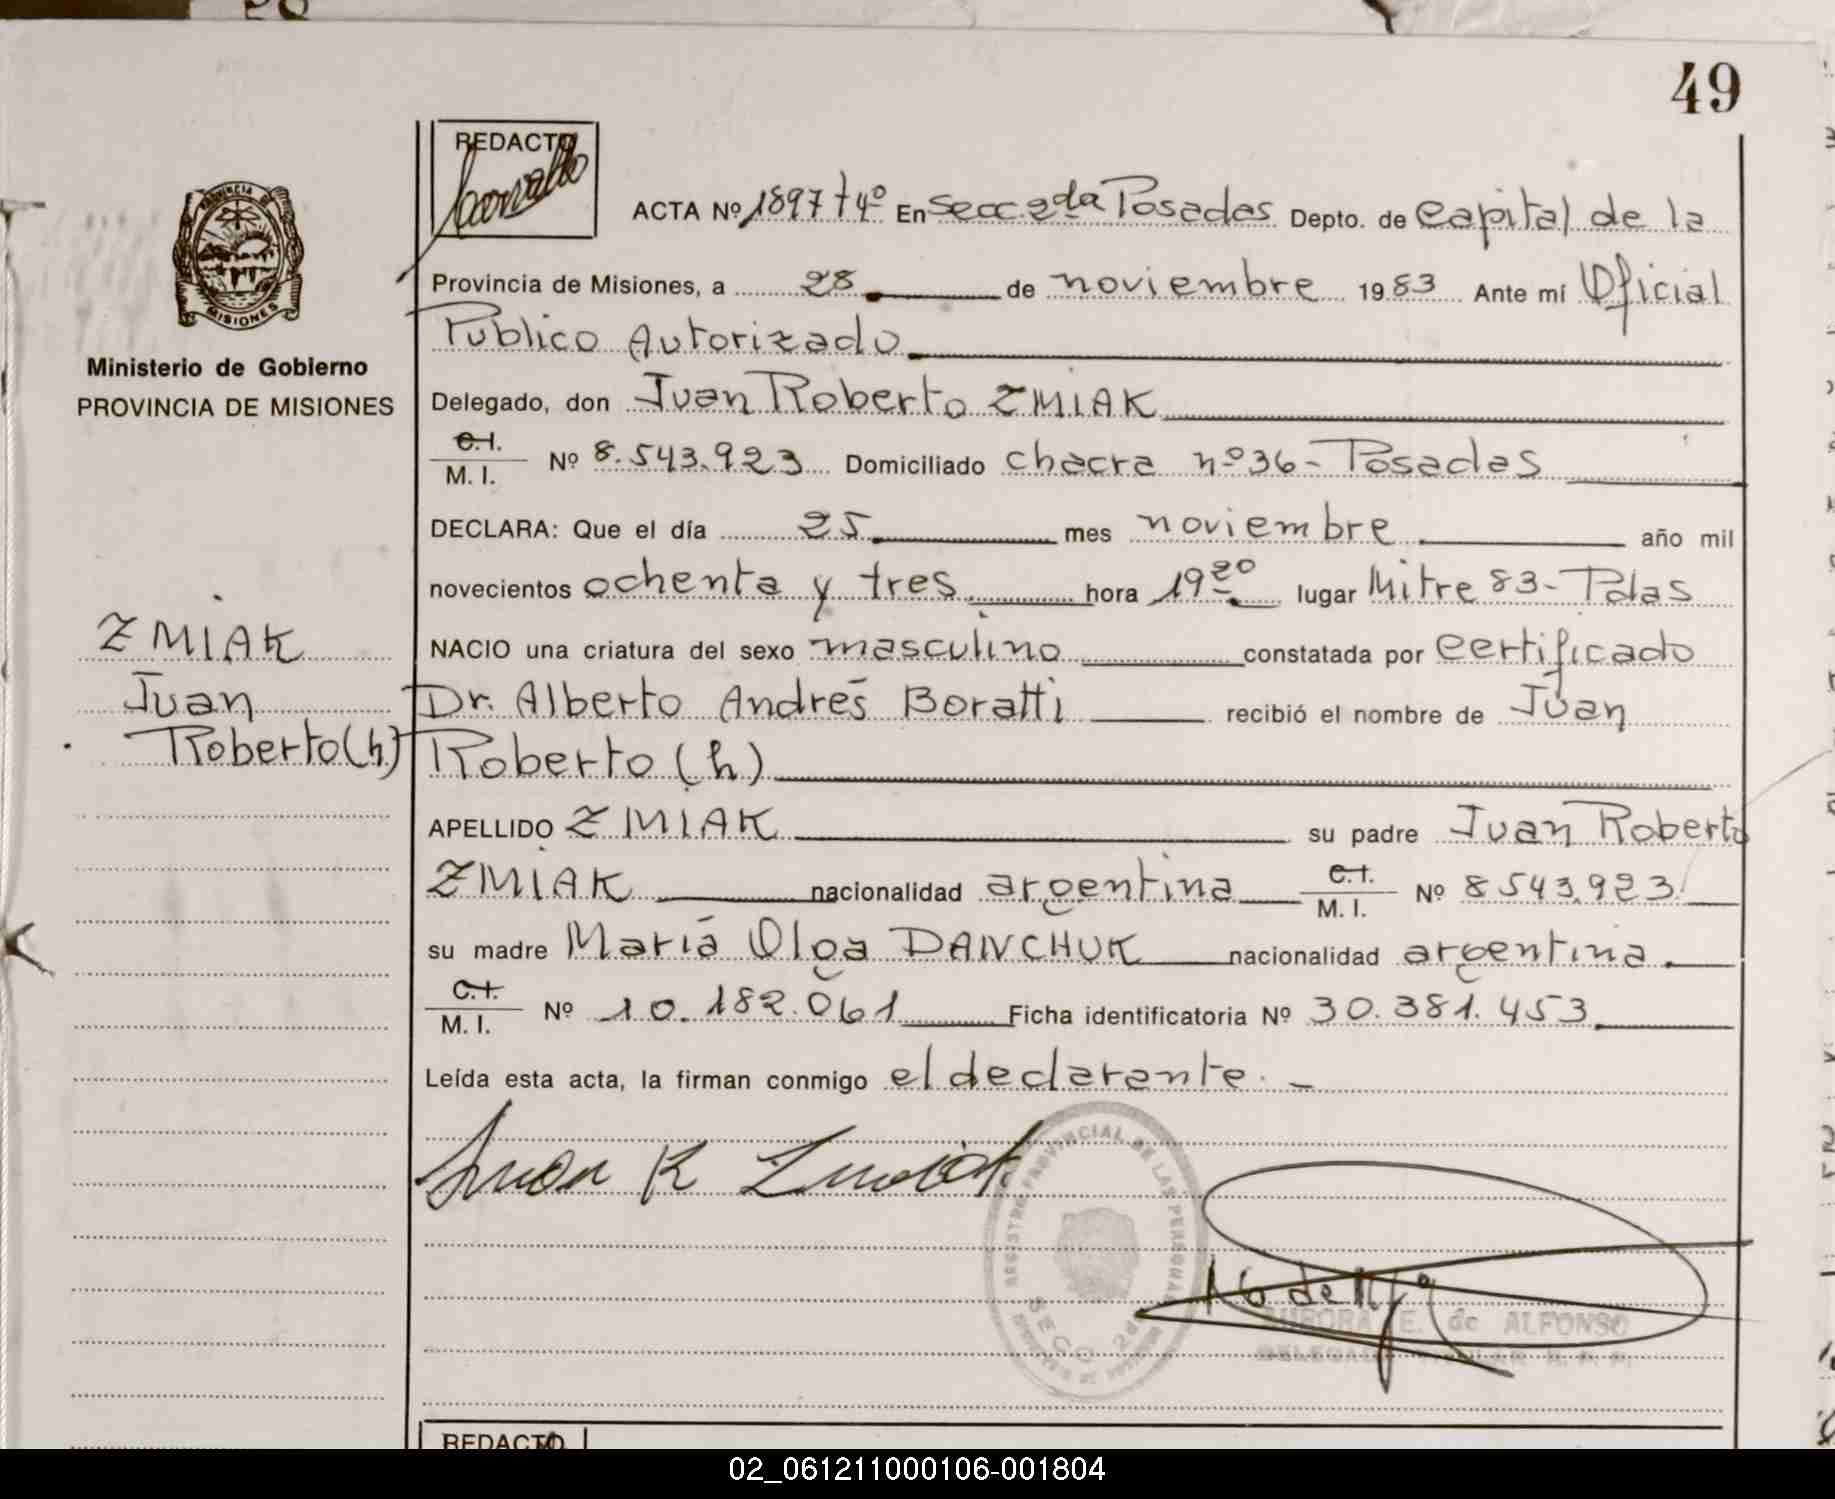 49
REDACTO
ACTA Nº 1897 t4º En Secc. 2da Posadas Depto. de Capital de la
Provincia de Misiones, a 28 de noviembre 1983 Ante mí Oficial
Público Autorizado
PROVINCIA DE MISIONES
Ministerio de Gobierno
PROVINCIA DE MISIONES
Delegado, don Juan Roberto ZMIAK
C.I.
M. I. Nº 8.543.923 Domiciliado chacra nº 36 - Posadas
DECLARA: Que el día 25 mes noviembre año mil
novecientos ochenta y tres hora 19 20 lugar Mitre 83 - Pdas
NACIO una criatura del sexo masculino constatada por certificado
Dr. Alberto Andrés Boratti recibió el nombre de Juan
Roberto (h)
ZMIAK
Juan
Roberto (h)
APELLIDO ZMIAK su padre Juan Roberto
ZMIAK nacionalidad argentina C.I. M. I. Nº 8543.923
su madre María Olga DANCHUK nacionalidad argentina
C.I.
M. I. Nº 10.182.061 Ficha identificatoria Nº 30.381.453
Leída esta acta, la firman conmigo el declarante. -
Juan R Zmiak
REGISTRO PROVINCIAL DE LAS PERSONAS
SECC 2da
AURORA E. de ALFONSO
REDACTO
02_061211000106-001804